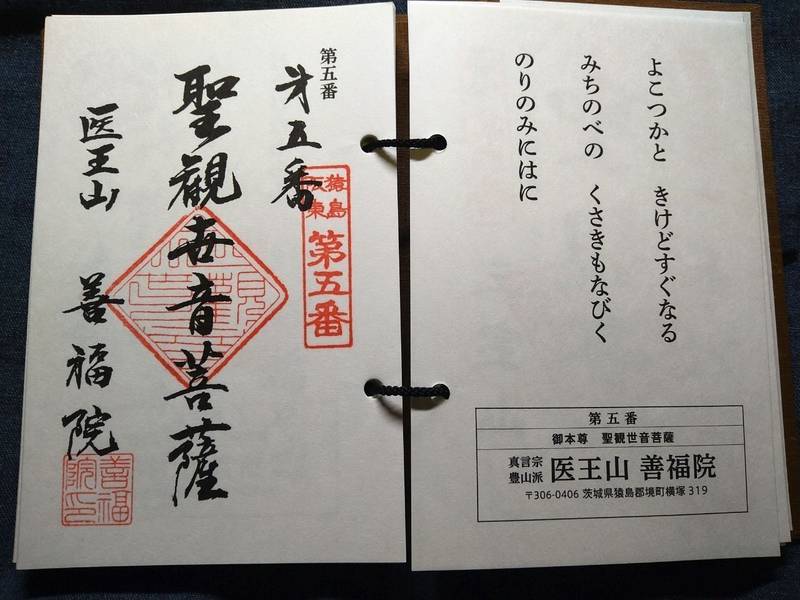 第五番
才五番
聖観世音菩薩
医王山 善福院
猿島
坂東
第五番
善福
院印
よこつかと きけどすぐなる
みちのべの くさきもなびく
のりのみにはに
第五番
御本尊 聖観世音菩薩
真言宗
豊山派
医王山 善福院
〒306-0406 茨城県猿島郡境町横塚 319